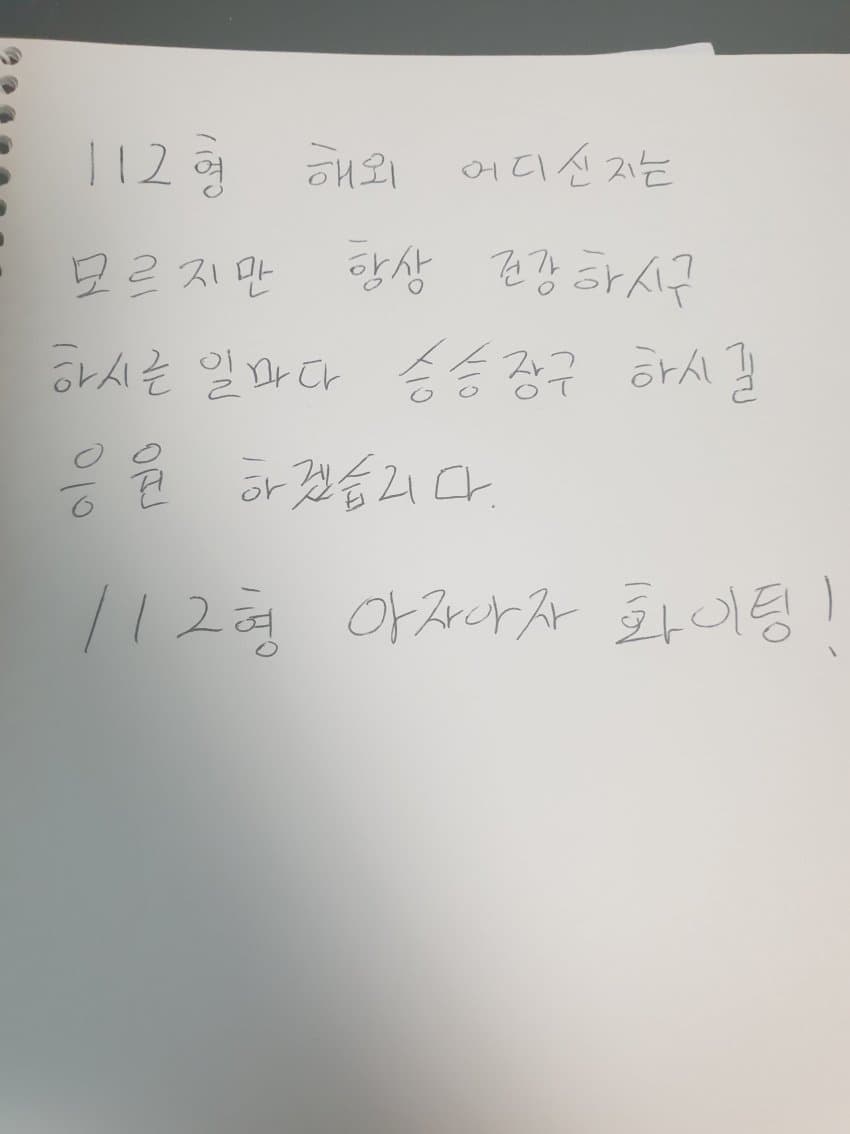 112형 해외 어디신지는
모르지만 항상 건강하시구
하시는 일마다 승승장구 하시길
응원 하겠습니다.
112형 아자아자 화이팅!